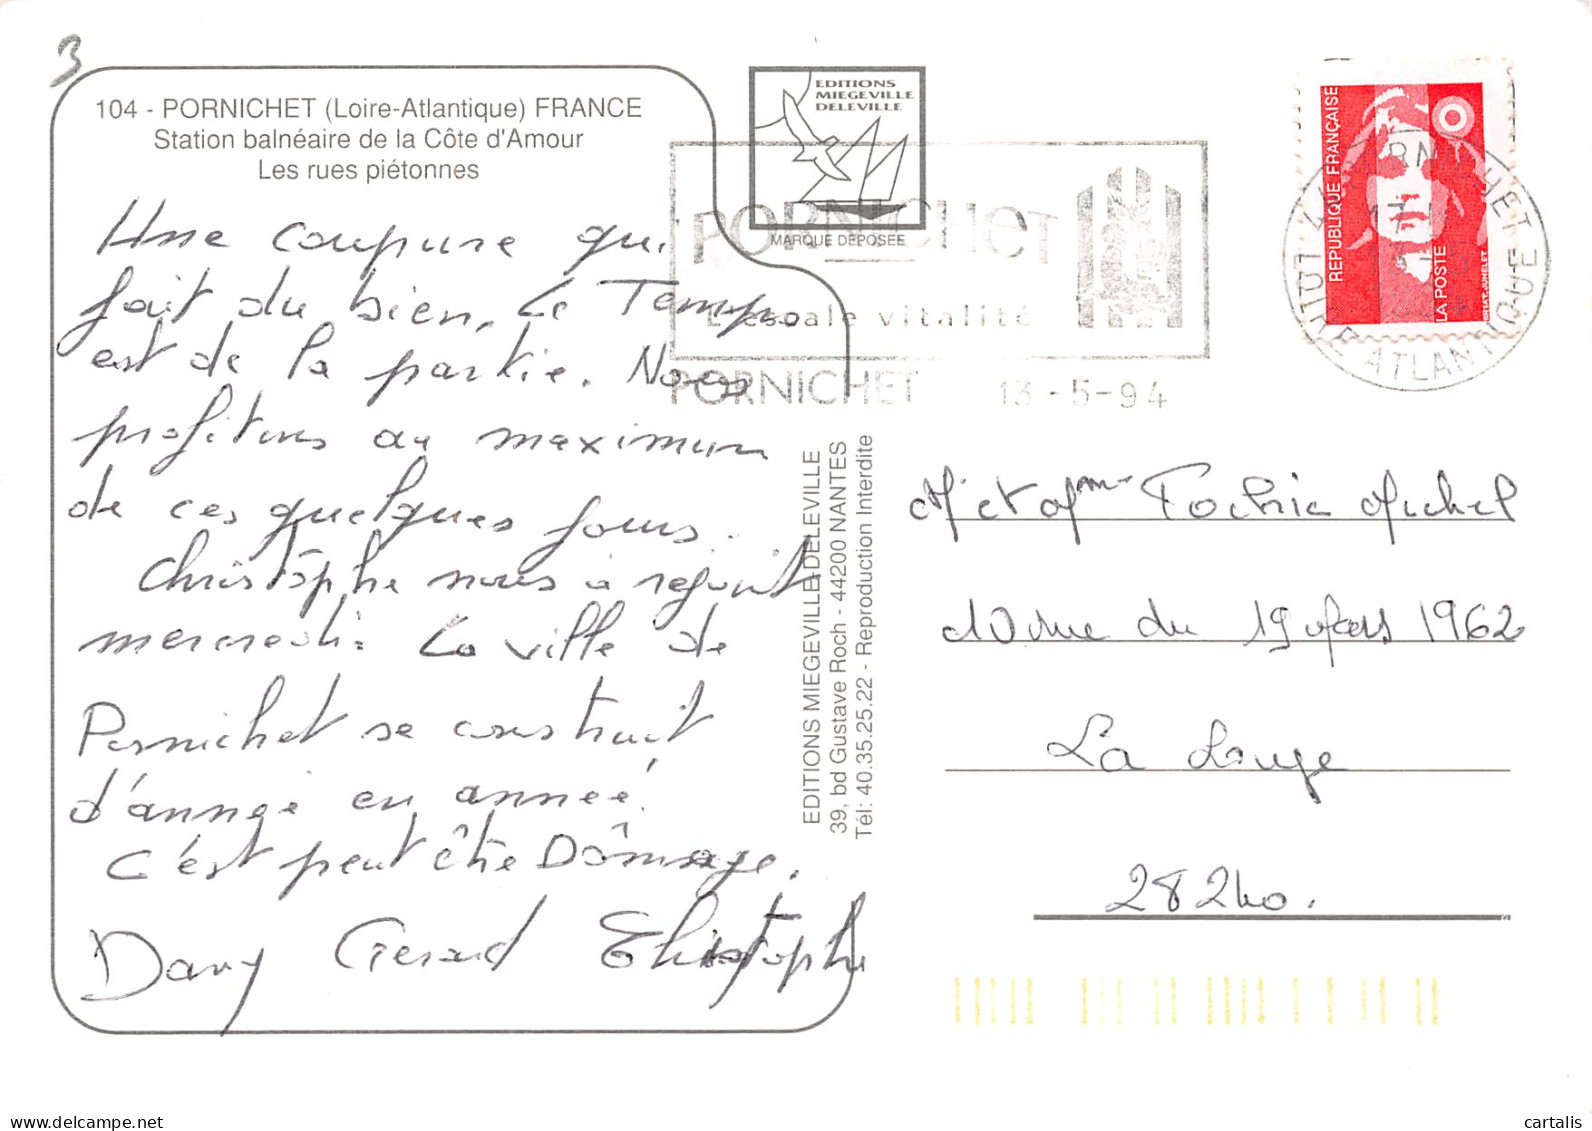 3
104 - PORNICHET (Loire-Atlantique) FRANCE
Station balnéaire de la Côte d'Amour
Les rues piétonnes
Une coupure qui
fait du bien, Le Temps
est de la partie. Nous
profitons au maximum
de ces quelques jours.
Christophe nous a rejoint
mercredi. La ville de
Pornichet se construit
d'année en année.
C'est peut être Dômage.
Dany Gérard Christophe
EDITIONS
MIEGEVILLE
DELEVILLE
MARQUE DÉPOSÉE
PORNICHET
L'escale vitalité
PORNICHET 13-5-94
EDITIONS MIEGEVILLE-DELEVILLE
39, bd Gustave Roch - 44200 NANTES
Tél: 40.35.25.22 - Reproduction Interdite
REPUBLIQUE FRANÇAISE
LA POSTE
BRIAT. JUMELET
LOIRE ATLANTIQUE
Mr et Mme Michel
10 rue du 19 Mars 1962
La Loupe
28240.
cartalis